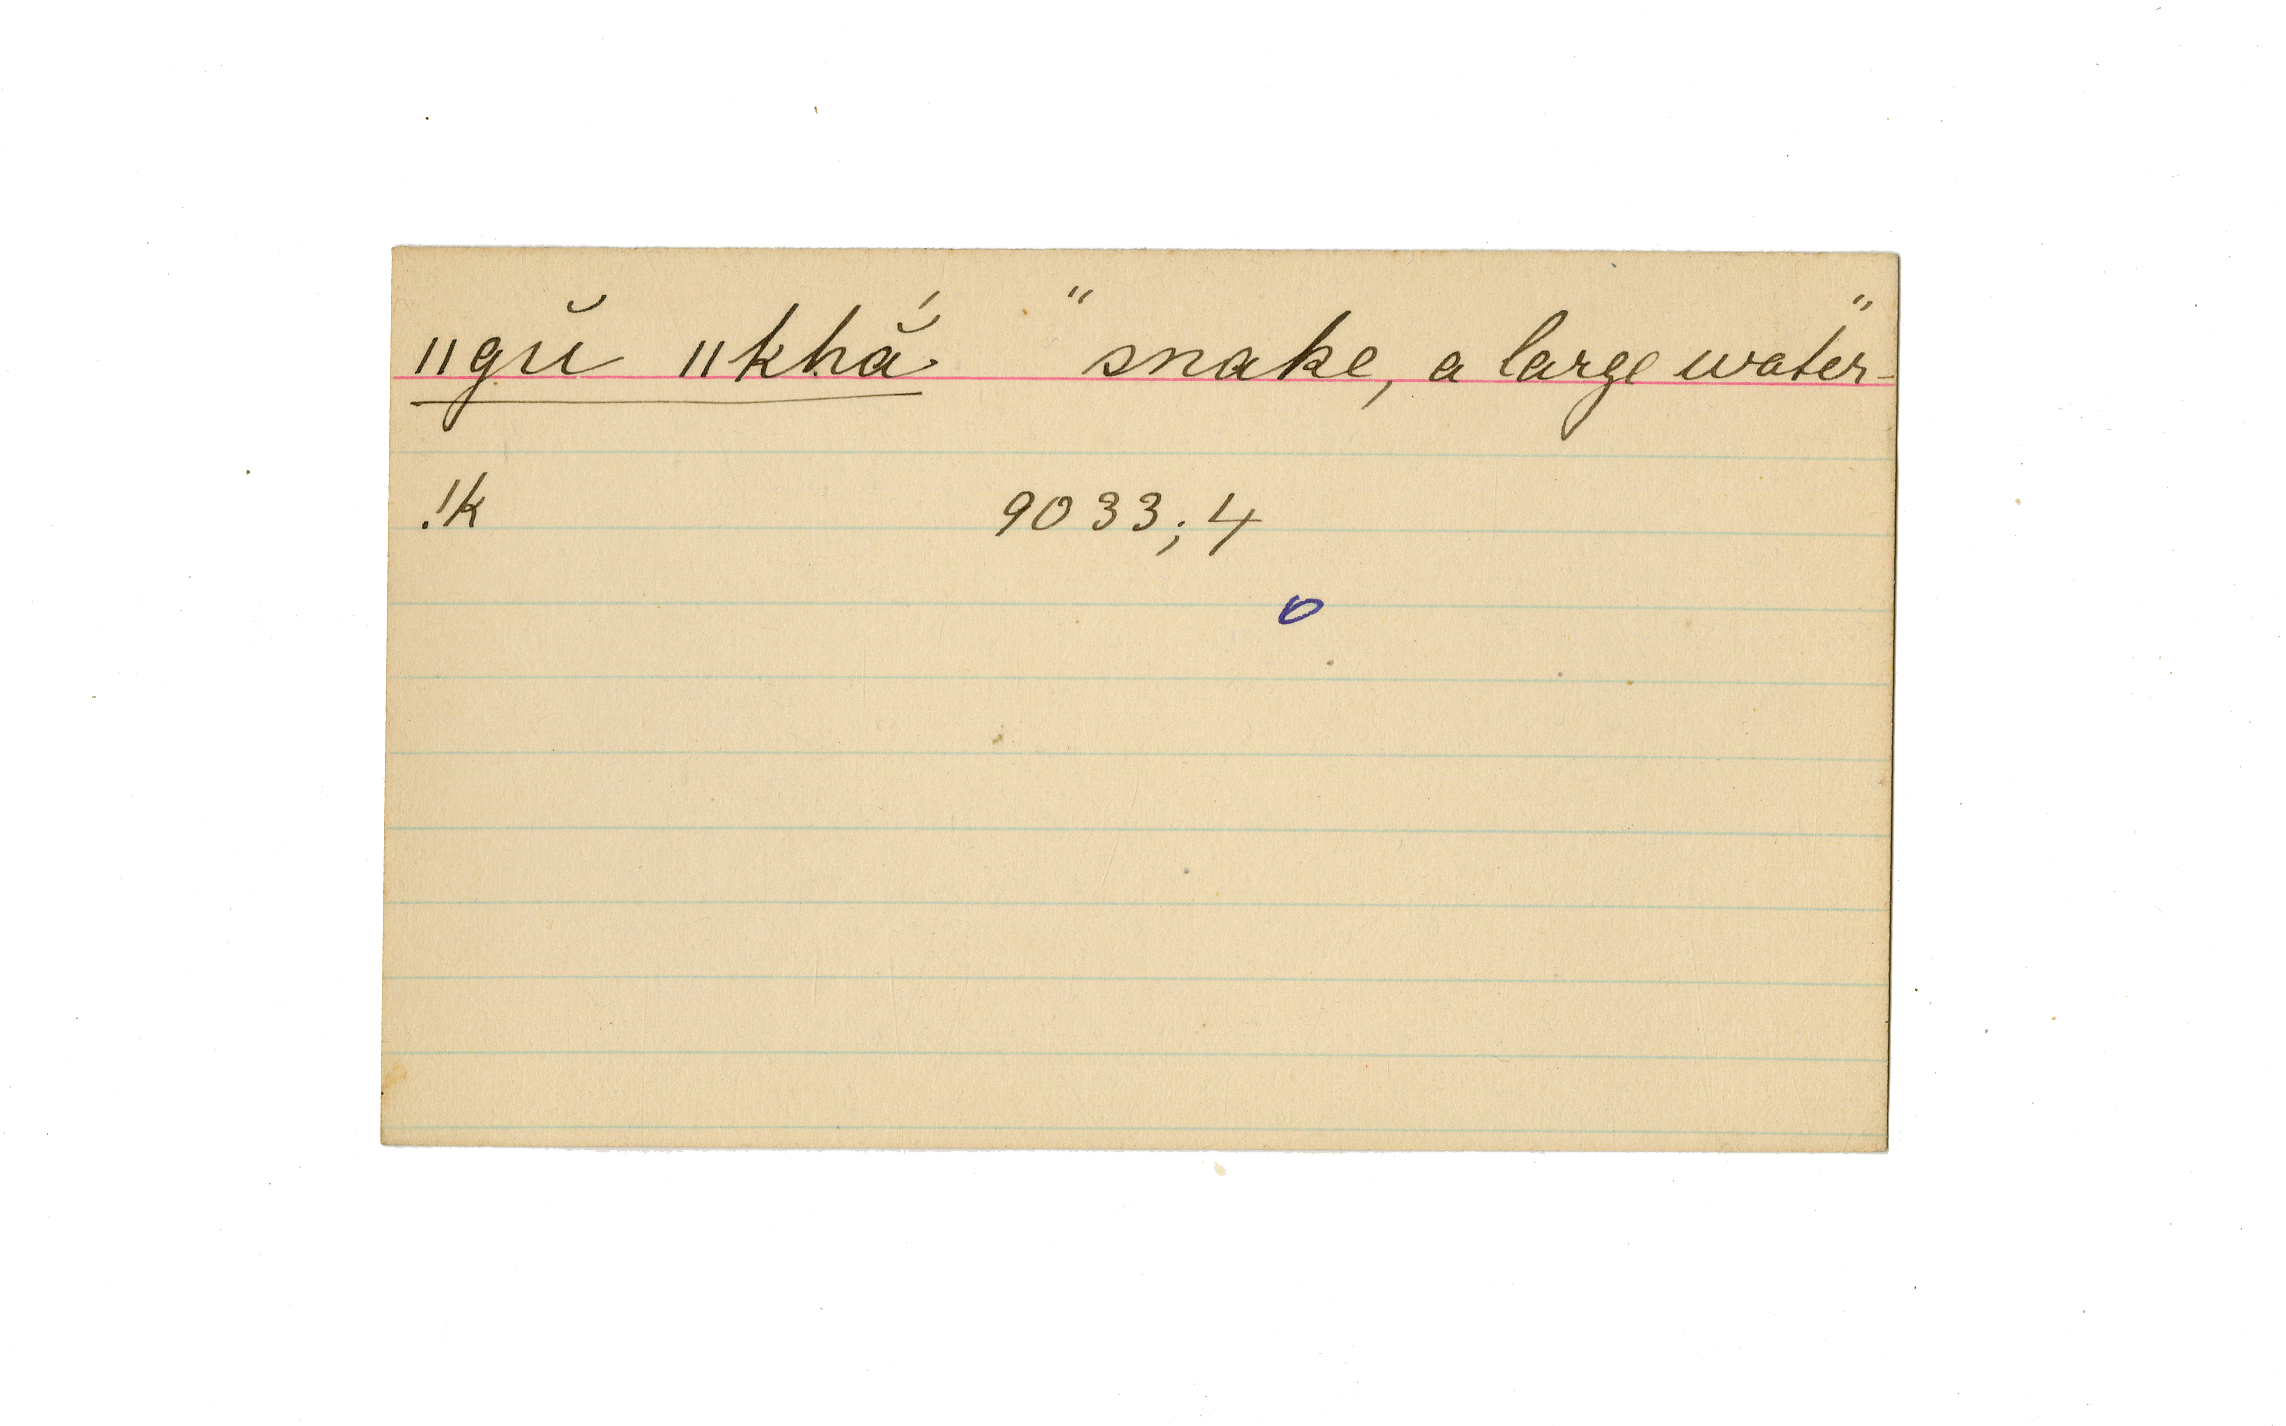 ǁgŭ ǁkhắ "snake, a large water-"
!k 9033; 4
o